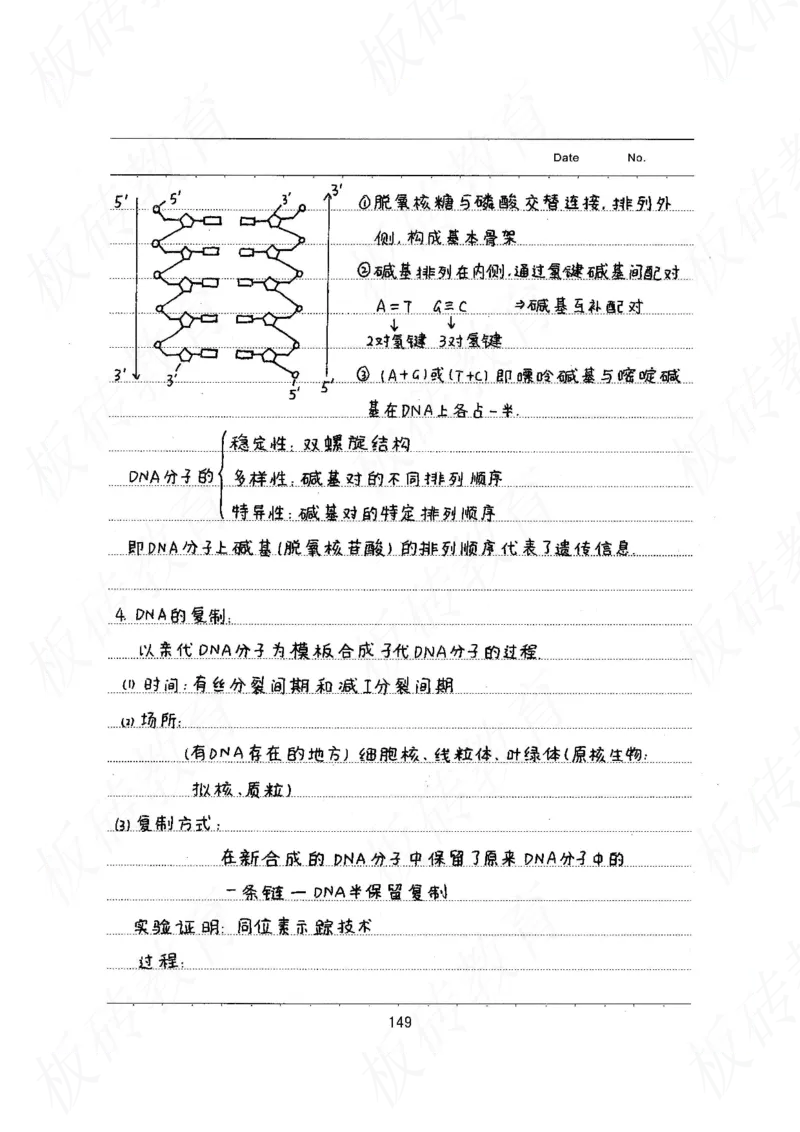 Date No.
5' 5' 3' 3'
①脱氧核糖与磷酸交替连接,排列外
侧,构成基本骨架
②碱基排列在内侧,通过氢键碱基间配对
A=T G≡C ⇒碱基互补配对
↓ ↓
2对氢键 3对氢键
3' 3' 5' 5'
③ (A+G)或(T+C)即嘌呤碱基与嘧啶碱
基在DNA上各占一半.
DNA分子的
稳定性:双螺旋结构
多样性:碱基对的不同排列顺序
特异性:碱基对的特定排列顺序
即DNA分子上碱基(脱氧核苷酸)的排列顺序代表了遗传信息.
4. DNA的复制:
以亲代DNA分子为模板合成子代DNA分子的过程.
(1) 时间:有丝分裂间期和减I分裂间期
(2) 场所:
(有DNA存在的地方) 细胞核、线粒体、叶绿体(原核生物:
拟核、质粒)
(3) 复制方式:
在新合成的DNA分子中保留了原来DNA分子中的
一条链—DNA半保留复制
实验证明:同位素示踪技术
过程:
149
板砖教育